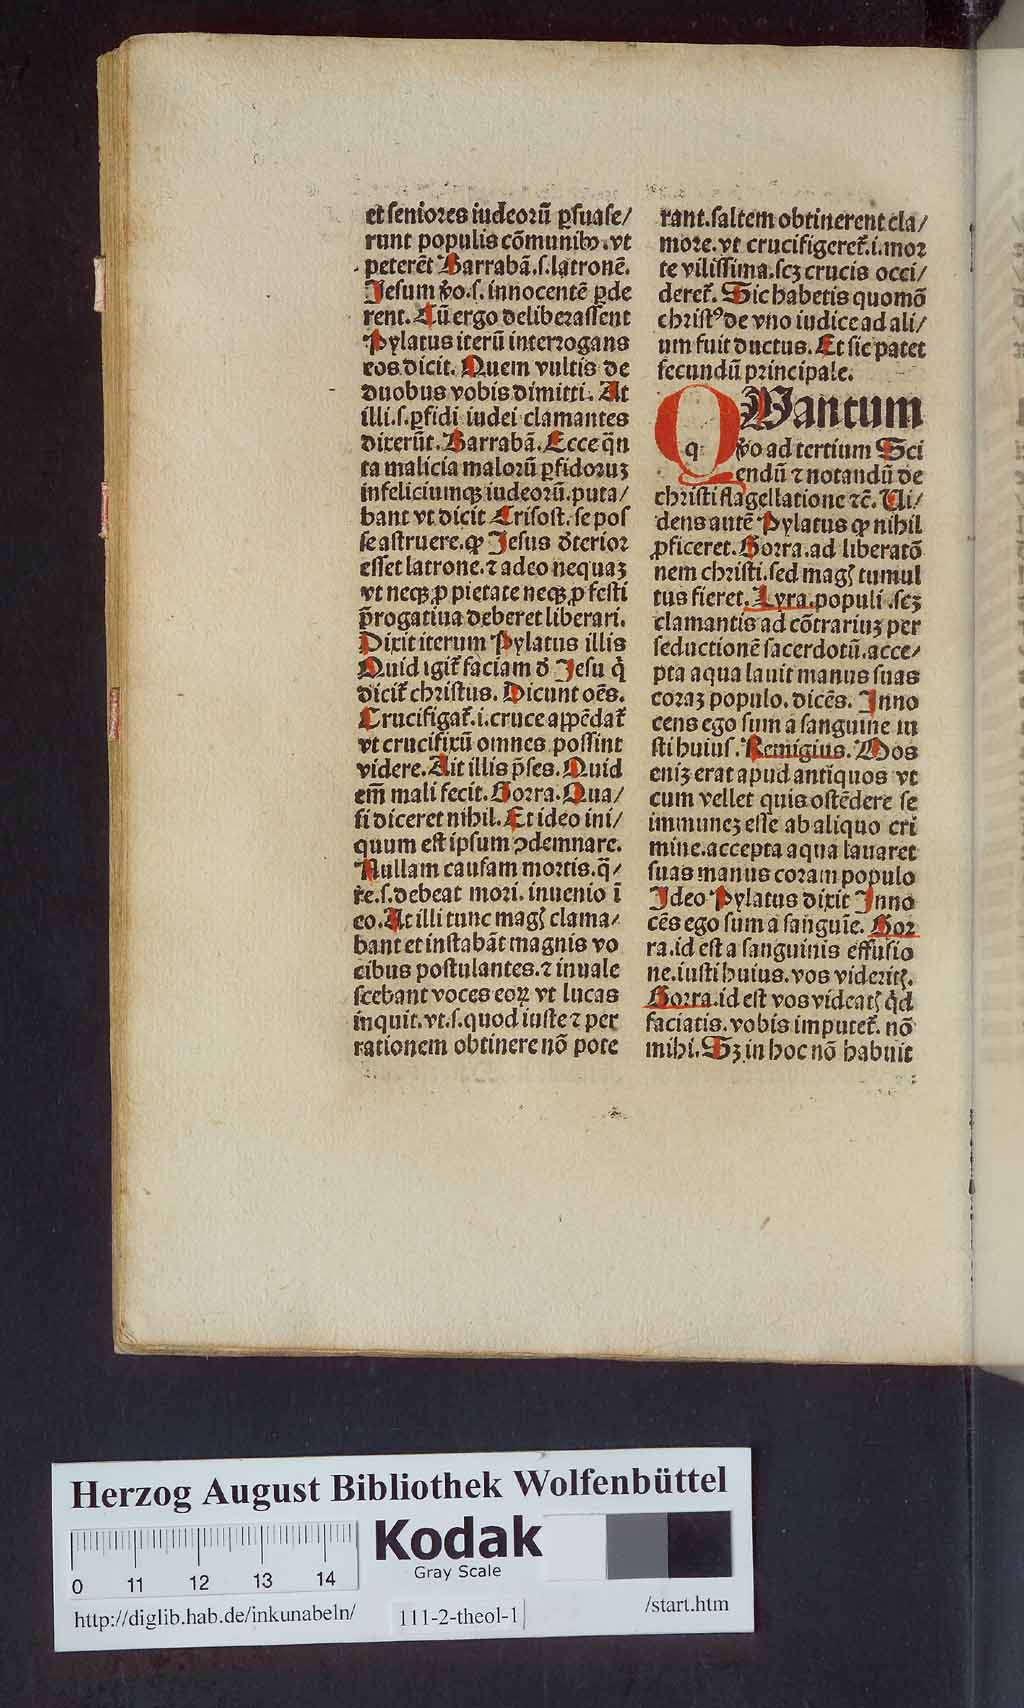 et seniores iudeorū ꝑsuase/
runt populis cōmunibꝰ. vt
peterēt Barrabā.s.latronē.
Jesum v̄o.s. innocentē ꝑde
rent. Cū ergo deliberassent
Pylatus iterū interrogans
eos dicit. Quem vultis de
duobus vobis dimitti. At
illi.s.ꝑfidi iudei clamantes
dixerūt. Barrabā. Ecce q̄n
ta malicia malorū ꝑfidoruꝫ
infeliciumqꝫ iudeorū.puta/
bant vt dicit Crisost. se pos
se astruere.ꝙ Jesus d̄terior
esset latrone.⁊ adeo nequaꝫ
vt neqꝫ ꝓ pietate neqꝫ ꝓ festi
p̄rogatiua deberet liberari.
Dixit iterum Pylatus illis
Quid igit᷑ faciam d̄ Jesu q̇
dicit᷑ christus. Dicunt oēs.
Crucifigat᷑.i.cruce appēdat᷑
vt crucifixū omnes possint
videre. Ait illis p̄ses. Quid
em̄ mali fecit. Gorra. Qua/
si diceret nihil. Et ideo ini/
quum est ipsum ꝯdemnare.
Nullam causam mortis.q̄/
re.s.debeat mori. inuenio ī
eo. At illi tunc magꝭ clama/
bant et instabāt magnis vo
cibus postulantes.⁊ inuale
scebant voces eoꝝ vt lucas
inquit.vt.s.quod iuste ⁊ per
rationem obtinere nō pote
rant.saltem obtinerent cla/
more.vt crucifigeret᷑.i.mor
te vilissima.scꝫ crucis occi/
deret᷑. Sic habetis quomō
christꝰ de vno iudice ad ali/
um fuit ductus. Et sic patet
secundū principale.
QWantum
q v̄o ad tertium Sci
endū ⁊ notandū de
christi flagellatione ⁊c̄. Ui/
dens autē Pylatus ꝙ nihil
ꝓficeret. Gorra.ad liberatō
nem christi.sed magꝭ tumul
tus fieret. Lyra.populi.scꝫ
clamantis ad cōtrariuꝫ per
seductionē sacerdotū.acce/
pta aqua lauit manus suas
coraꝫ populo. dicēs. Inno
cens ego sum a sanguine iu
sti huius. Remigius. Mos
eniꝫ erat apud antiquos vt
cum vellet quis ostēdere se
immuneꝫ esse ab aliquo cri
mine.accepta aqua lauaret
suas manus coram populo
Ideo Pylatus dixit Inno
cēs ego sum a sanguīe. Gor
ra.id est a sanguinis effusio
ne.iusti huius.vos videritꝭ.
Gorra.id est vos videatꝭ q̇d
faciatis.vobis imputet᷑. nō
mihi. Sꝫ in hoc nō habuit
Herzog August Bibliothek Wolfenbüttel
Kodak
Gray Scale
0 11 12 13 14
http://diglib.hab.de/inkunabeln/
111-2-theol-1
/start.htm